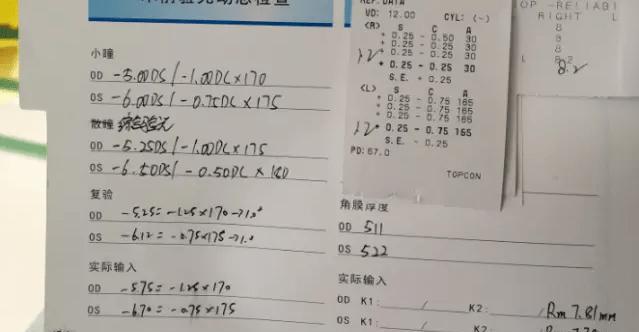 小瞳
OD -5.00DS/-1.00DC×170
OS -6.00DS/-0.75DC×175
散瞳
OD -5.25DS/-1.00DC×175
OS -6.50DS/-0.50DC×180
复验
OD -5.25=-1.25×170→1.0
OS -6.12=-0.75×175→1.0
实际输入
OD -5.75=-1.25×170
OS -6.70=-0.75×175
REF. DATA
VD: 12.00 CYL: (-)
<R> S C A
+ 0.25 - 0.50 30
+ 0.25 - 0.25 30
+ 0.25 - 0.25 30
+ 0.25 - 0.25 30
S.E. + 0.25
<L> S C A
+ 0.25 - 0.75 165
+ 0.25 - 0.75 165
+ 0.25 - 0.75 165
+ 0.25 - 0.75 165
S.E. - 0.25
PD: 67.0
TOPCON
RELIABI
RIGHT L
8
8
8
8.2
8.2
角膜厚度
OD 511
OS 522
实际输入
OD K1: / K2: / Rm 7.81mm
OS K1: / K2: /